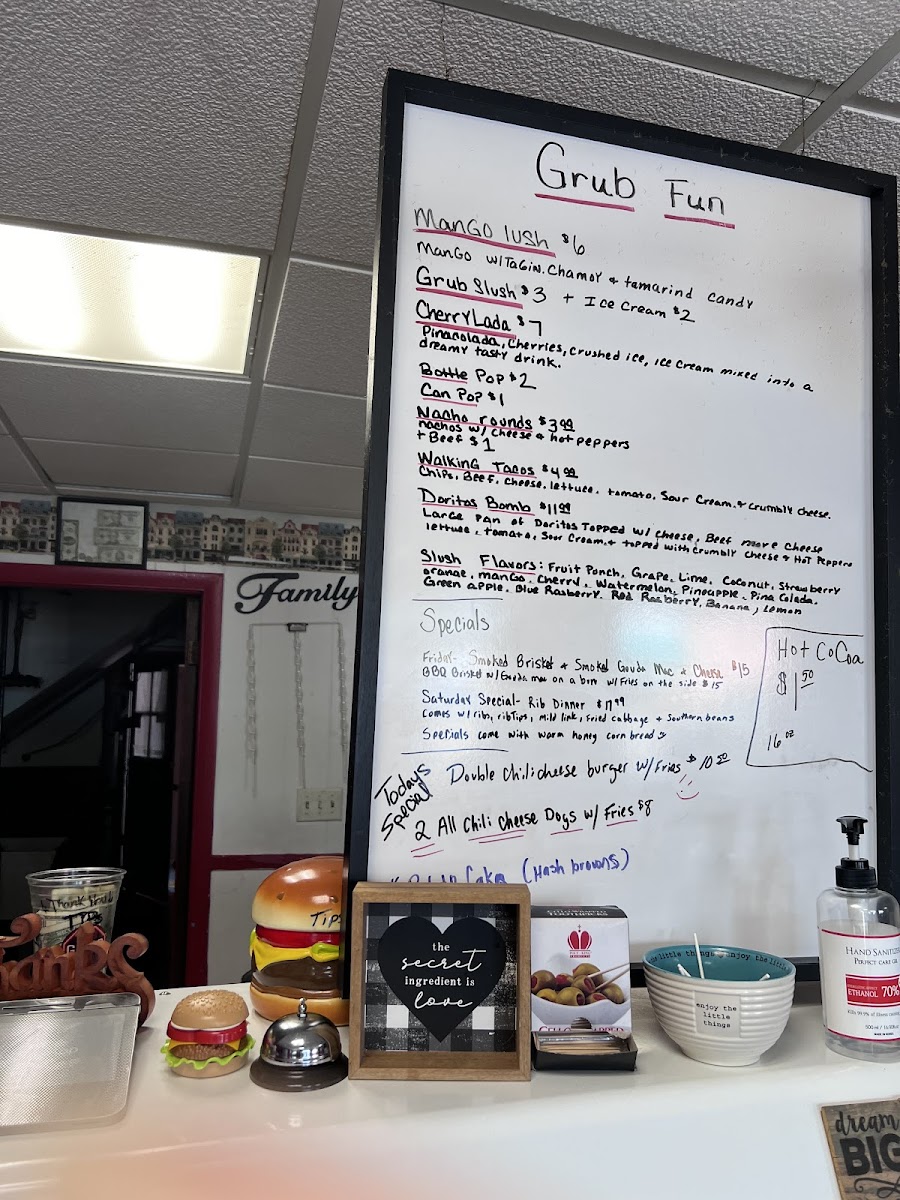 Grub Fun
Mango lush $6
Mango w/Tagin. Chamoy & tamarind candy
Grub Slush $3 + Ice Cream $2
Cherry Lada $7
Pinacolada, Cherries, Crushed ice, ice cream mixed into a
dreamy tasty drink.
Bottle Pop $2
Can Pop $1
Nacho rounds $3.99
nachos w/ cheese & hot peppers
+ Beef $1
Walking Tacos $4.99
Chips, Beef, cheese, lettuce, tomato, Sour Cream, & crumbly cheese.
Doritos Bomb $11.99
Large Pan of Doritos Topped w/ cheese, Beef more cheese
lettuce, tomato, Sour Cream & topped with crumbly cheese & Hot Peppers
Slush Flavors: Fruit Punch, Grape, Lime, Coconut, Strawberry
orange, mango, Cherry, Watermelon, Pineapple, Pina Colada,
Green apple, Blue Rasberry, Red Rasberry, Banana, Lemon
Specials
Friday- Smoked Brisket & Smoked Gouda Mac & Cheese $15
BBQ Brisket w/ Gouda mac on a bun w/ Fries on the side $15
Saturday Special- Rib Dinner $17.99
Comes w/ ribs, rib tips, mild link, fried cabbage & Southern beans
Specials come with warm honey corn bread
Hot CoCoa
$1.50
16 oz
Todays
Special
Double Chili cheese burger w/ Fries $10.50
2 All Chili Cheese Dogs w/ Fries $8
Cake (Hash browns)
Family
Thank
TIPS
Thanks
Tips
the
secret
ingredient is
love
TOOTHPICKS
enjoy the little
enjoy the
little
things
HAND SANITIZER
PERFECT CARE GEL
ETHANOL 70%
dream
BIG